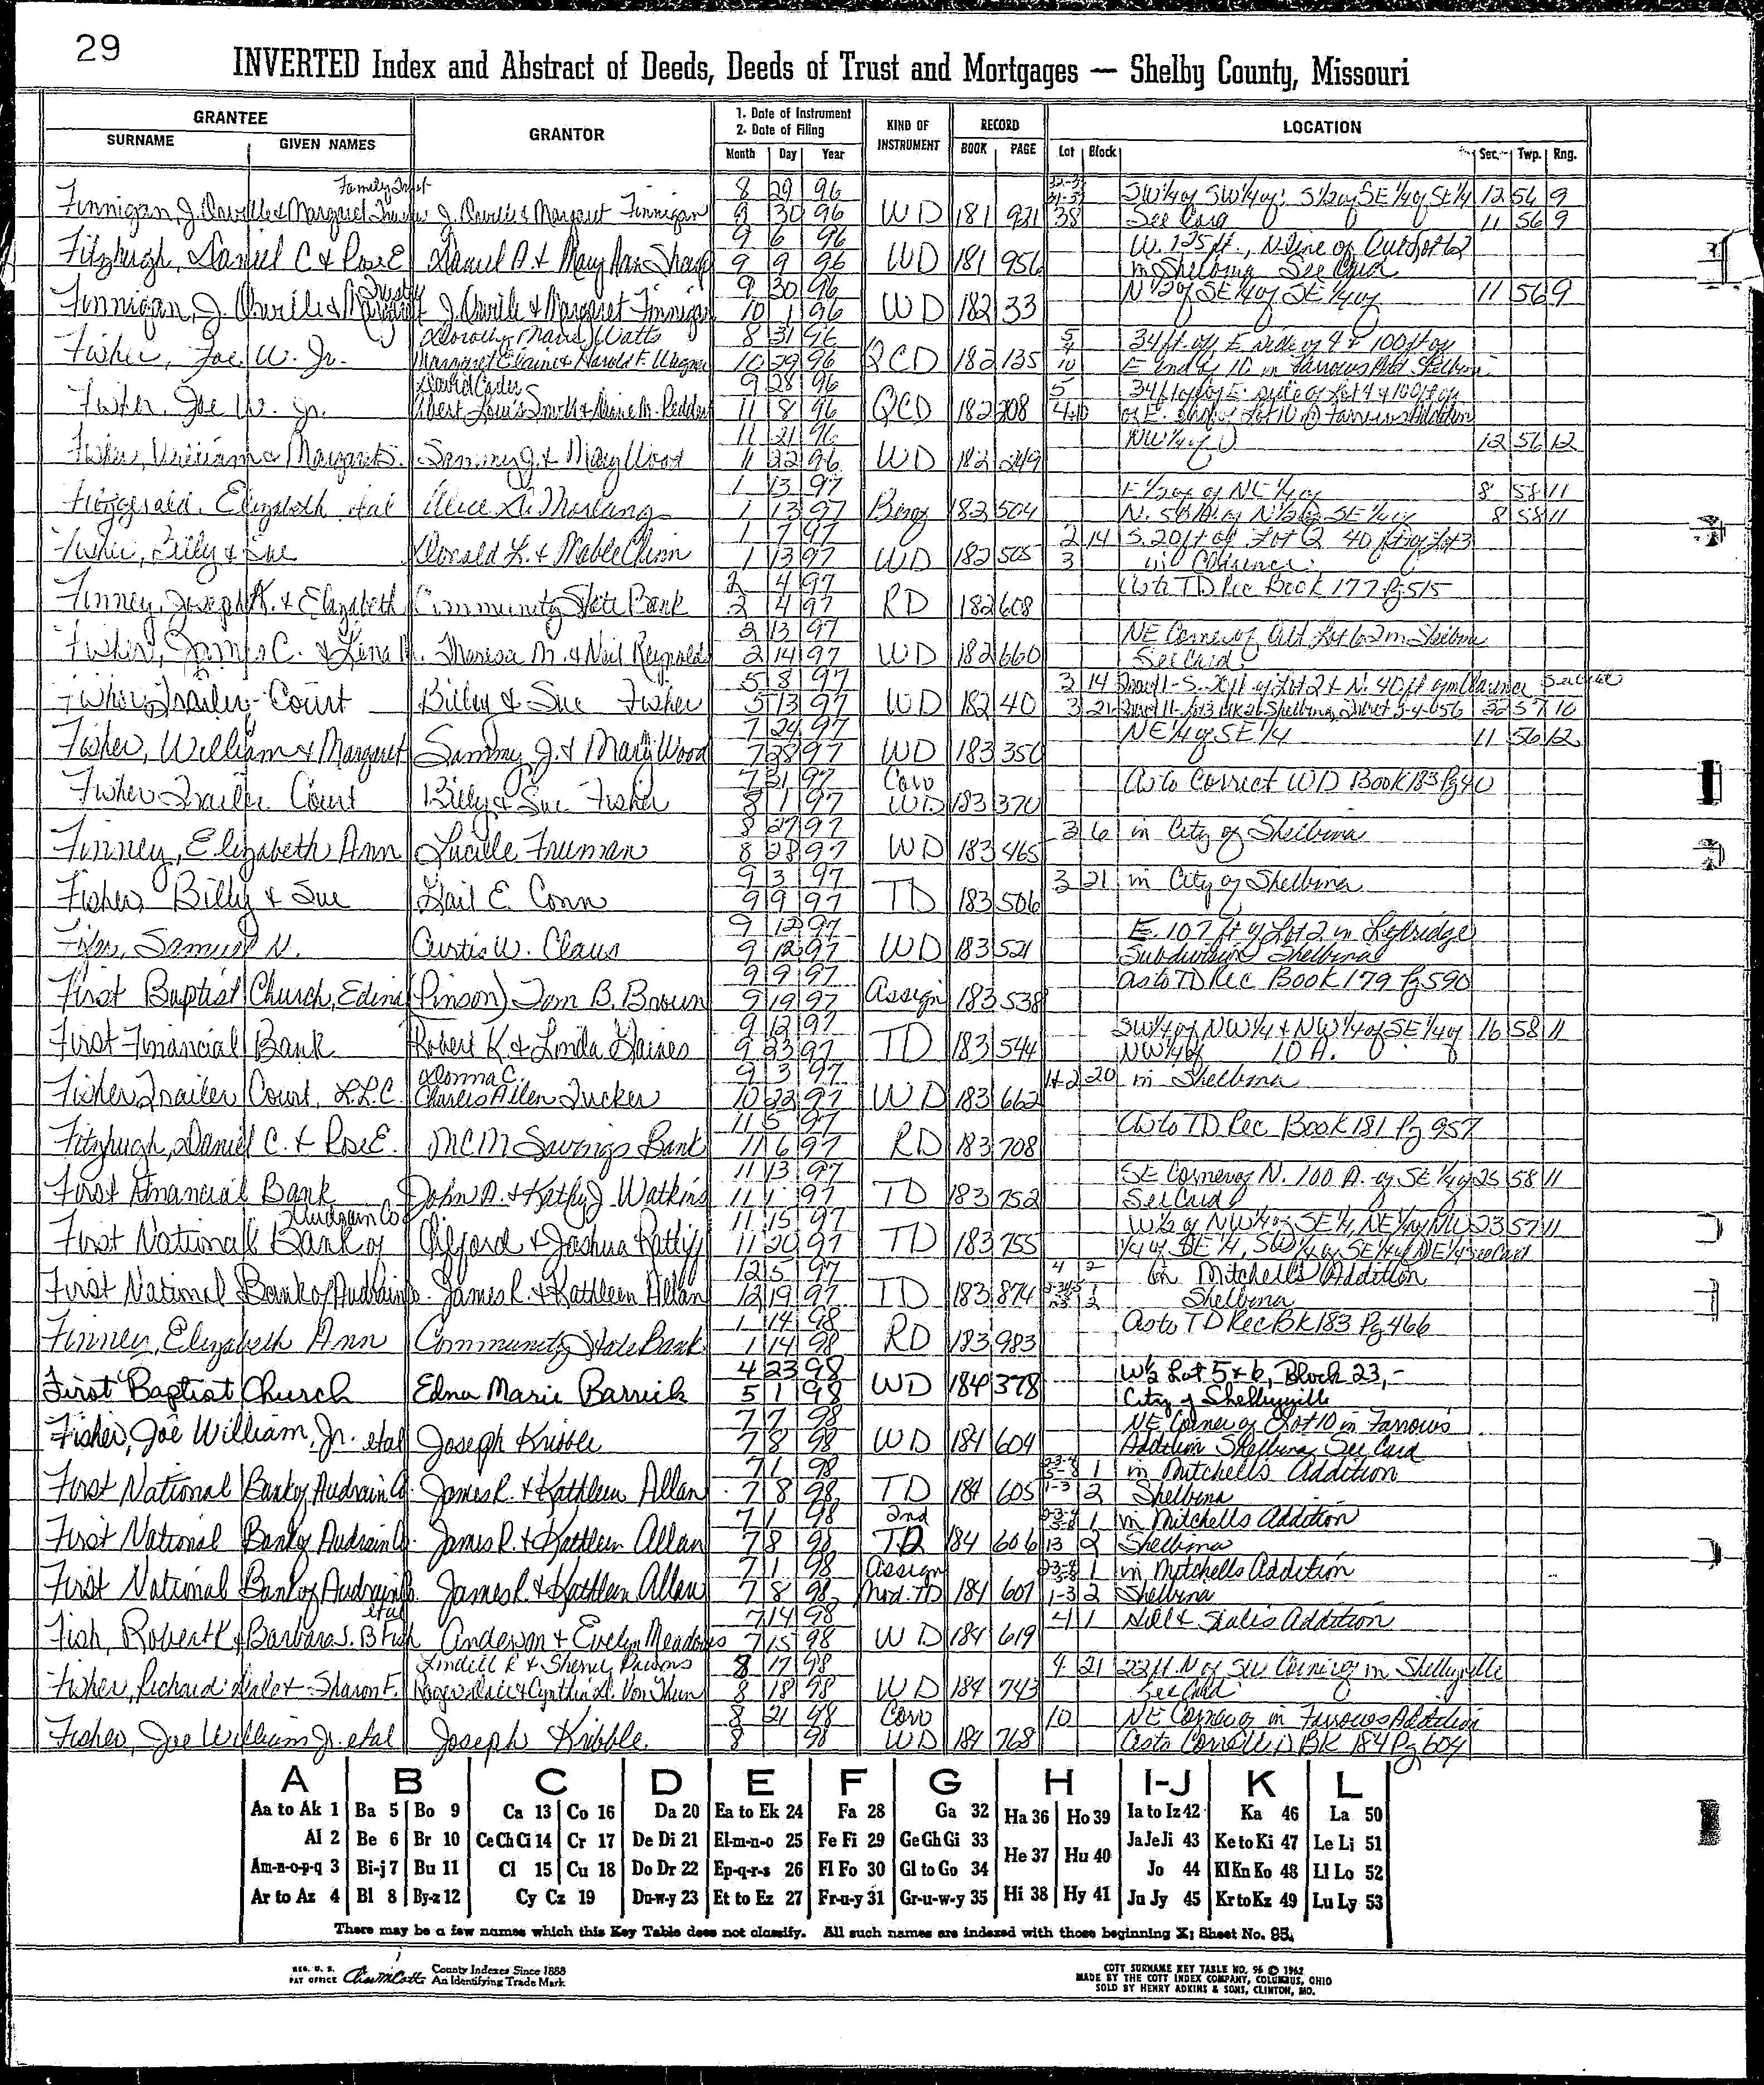 29
INVERTED Index and Abstract of Deeds, Deeds of Trust and Mortgages — Shelby County, Missouri
GRANTEE GRANTOR 1. Date of Instrument 2. Date of Filing KIND OF INSTRUMENT RECORD LOCATION
SURNAME GIVEN NAMES Month Day Year BOOK PAGE Lot Block Sec. Twp. Rng.
Family Trust 8 29 96 SW 1/4 of SW 1/4 of; S 1/2 of SE 1/4 of SE 1/4 12 56 9
Finnigan, J. Orville & Margaret J. Orville & Margaret Finnigan 9 30 96 WD 181 921 38 See Card 11 56 9
9 6 96 W. 125 ft., N. line of Outlot 62
Fitzhugh, Daniel C & Rose E Daniel A. & Mary Ann Sharp 9 9 96 WD 181 956 in Shelbina See Card
9 30 96 N 1/2 of SE 1/4 of SE 1/4 of 11 56 9
Finnigan, J. Orville & Margaret J. Orville & Margaret Finnigan 10 1 96 WD 182 33
Dorothy Marie Watts 8 31 96 5 34 ft. off E side of 4 & 100 ft of
Fisher, Joe W. Jr. Margaret Elaine & Harold F. Wagner 10 29 96 QCD 182 135 10 E end of 10 in Farrows Add Shelbina
9 28 96 5 34 ft off of E. side of Lot 4 & 100 ft of
Fisher, Joe W. Jr. 11 8 96 QCD 182 208 4-10 E. end of Lot 10 in Farrows Addition
11 21 96 NW 1/4 of 12 56 12
Fisher, William & Margaret Sammy J. & Mary Wood 11 22 96 WD 182 249
1 13 97 E 1/2 of NE 1/4 of 8 58 11
Fitzgerald, Elizabeth etal Alice 1 13 97 182 504 8 58 11
1 7 97 2 14 S. 20 ft of Lot 2 40 ft of Lot 3
Fisher, Billy & Sue Donald L. & Mable Chinn 1 13 97 WD 182 505 3 in Clarence
2 4 97 As to TD Rec Book 177 Pg 515
Finney, Joseph K. & Elizabeth Community State Bank 2 4 97 RD 182 608
2 13 97 NE Corner of Out Lot 62 in Shelbina
Fisher, James C. & Lena M. Theresa M. & Neil Reynolds 2 14 97 WD 182 660 See Card
5 8 97 3 14 Tract 1 - S. 20 ft of Lot 2 & N. 40 ft
Fisher Trailer Court Billy & Sue Fisher 5 13 97 WD 182 40 3 21 32 57 10
7 24 97 NE 1/4 of SE 1/4 11 56 12
Fisher, William & Margaret Sammy J. & Mary Wood 7 28 97 WD 183 350
7 31 97 Corr As to Correct WD Book 183 Pg 40
Fisher Trailer Court Billy & Sue Fisher 8 1 97 WD 183 370
8 27 97 3 6 in City of Shelbina
Finney, Elizabeth Ann Lucille Truman 8 28 97 WD 183 465
9 3 97 3 21 in City of Shelbina
Fisher, Billy & Sue Gail E. Conn 9 9 97 TD 183 506
9 12 97 E. 107 ft of Lot 2 in
Samuel N. Curtis W. Claus 9 12 97 WD 183 521 Subdivision Shelbina
9 9 97 as to TD Rec Book 179 Pg 590
First Baptist Church, Edina (Pinson) Tom B. Brown 9 19 97 Assign 183 538
9 12 97 SW 1/4 of NW 1/4 & NW 1/4 of SE 1/4 of 16 58 11
First Financial Bank Robert K & Linda Gaines 9 23 97 TD 183 544 NW 1/4 of 10 A.
Donna C. 9 3 97 1+2 20 in Shelbina
Fisher Trailer Court, L.L.C. Charles Allen Tucker 10 22 97 WD 183 662
11 5 97 As to TD Rec Book 181 Pg 957
Fitzhugh, Daniel C. & Rose E. MCM Savings Bank 11 6 97 RD 183 708
11 13 97 SE Corner of N. 100 A. of SE 1/4 of 25 58 11
First Financial Bank John A. & Kathy J. Watkins 11 97 TD 183 752 See Card
Audrain Co 11 15 97 W 1/2 of NW 1/4 of SE 1/4, NE 1/4 of NW 23 57 11
First National Bank of Alford & Joshua Ratliff 11 20 97 TD 183 755 1/4 of SE 1/4, SW 1/4 of SE 1/4 of NE 1/4 See Card
12 5 97 4 2 in Mitchells Addition
First National Bank of Audrain Co. James R. & Kathleen Allan 12 19 97 TD 183 874 Shelbina
1 14 98 as to TD Rec Bk 183 Pg 466
Finney, Elizabeth Ann Community State Bank 1 14 98 RD 183 983
4 23 98 W 1/2 Lot 5 & 6, Block 23,-
First Baptist Church Edna Marie Barrick 5 1 98 WD 184 378 City of Shelbyville
7 7 98 NE Corner of Lot 10 in Farrows
Fisher, Joe William, Jr. etal Joseph Kribble 7 8 98 WD 184 604 Addition Shelbina See Card
7 1 98 1 in Mitchells Addition
First National Bank of Audrain Co. James R. & Kathleen Allan 7 8 98 TD 184 605 1-3 2 Shelbina
7 1 98 2nd 1 in Mitchells Addition
First National Bank of Audrain Co. James R. & Kathleen Allan 7 8 98 TD 184 606 13 2 Shelbina
7 1 98 Assign 1 in Mitchells Addition
First National Bank of Audrain Co. James R. & Kathleen Allan 7 8 98 Mod. TD 184 607 1-3 2 Shelbina
etal 7 14 98 4 1 Addition
Fish, Robert K & Barbara J. Anderson & Evelyn Meadows 7 15 98 WD 184 619
Lindell R & Sherry Parsons 8 17 98 4 21 22 ft. N of SW Corner of in Shelbyville
Fisher, Richard Dale & Sharon F. Roger Dale & Cynthia A. Von Thun 8 18 98 WD 184 743 See Card
8 21 98 Corr 10 NE Corner of in Farrows Addition
Fisher, Joe William Jr. etal Joseph Kribble 8 98 WD 184 768 as to Corr WD BK 184 Pg 604
A B C D E F G H I-J K L
Aa to Ak 1 Ba 5 Bo 9 Ca 13 Co 16 Da 20 Ea to Ek 24 Fa 28 Ga 32 Ha 36 Ho 39 Ia to Iz 42 Ka 46 La 50
Al 2 Be 6 Br 10 Ce Ch Ci 14 Cr 17 De Di 21 El-m-n-o 25 Fe Fi 29 Ge Gh Gi 33 He 37 Hu 40 Ja Je Ji 43 Ke to Ki 47 Le Li 51
Am-n-o-p-q 3 Bi-j 7 Bu 11 Cl 15 Cu 18 Do Dr 22 Ep-q-r-s 26 Fl Fo 30 Gl to Go 34 Jo 44 Kl Kn Ko 48 Ll Lo 52
Ar to Az 4 Bl 8 By-z 12 Cy Cz 19 Du-w-y 23 Et to Ez 27 Fr-u-y 31 Gr-u-w-y 35 Hi 38 Hy 41 Ju Jy 45 Kr to Kz 49 Lu Ly 53
There may be a few names which this Key Table does not classify. All such names are indexed with those beginning X; Sheet No. 95.
REG. U. S. PAT OFFICE County Indexes Since 1888 An Identifying Trade Mark
COTT SURNAME KEY TABLE NO. 96 © 1962
MADE BY THE COTT INDEX COMPANY, COLUMBUS, OHIO
SOLD BY HENRY ADKINS & SONS, CLINTON, MO.